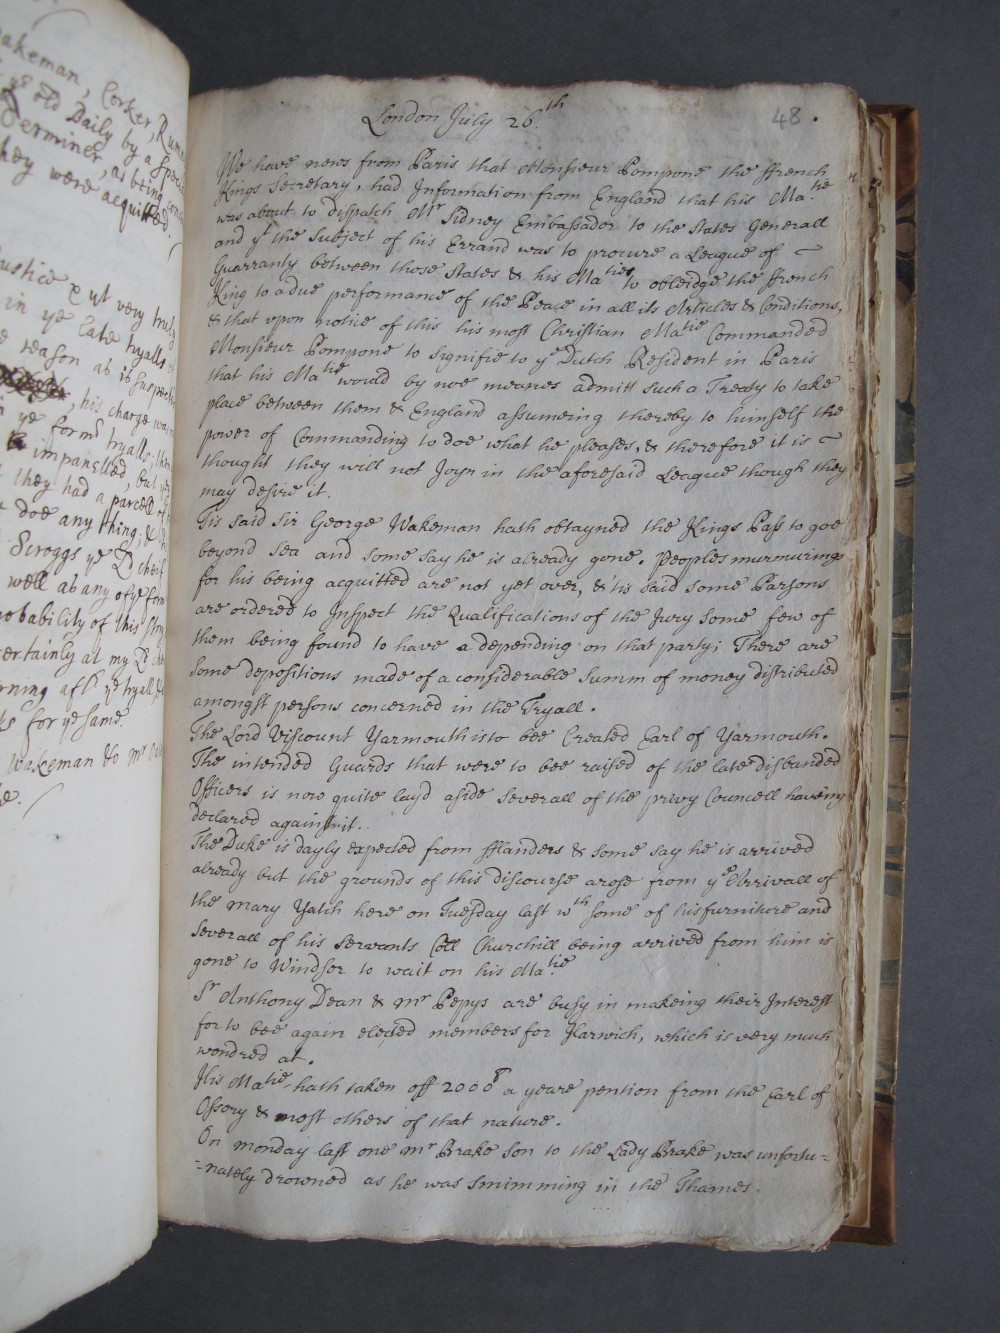 akeman, Corker, Rum
ye old Baily by a Spec
Terminer, as being
hey were acquitted.
ustice x yt very truly
in ye late tryalls
reason as is suspect
his charge was
ye formr tryalls,
impanelled, but
they had a parcell of
doe any thing, &
Scroggs ye Ld cheif
well as any of ye form
obability of this
ertainly at my Ld
rning aftr ye tryall,
for ye same.
Wakeman & to Mr
48.
London July 26.th
We have news from Paris that Monsieur Pompone the ffrench
Kings Secretary, had Information from England that his Ma:tie
was about to dispatch Mr Sidney Embassador to the States Generall
and yt the Subject of his Errand was to procure a League of ~
Guarranty between those States & his Maties, to obleidge the ffrench
King to a due performance of the Peace in all its Articles & Conditions,
& that vpon notice of this his most Christian Matie Commanded
Monsieur Pompone to Signifie to ye Dutch Resident in Paris
that his Matie would by noe meanes admitt such a Treaty to take
place between them & England assumeing thereby to himself the
power of Commanding to doe what he pleases, & therefore it is ~
thought they will not Joyn in the aforesaid League though they
may desire it.
Tis said Sir George Wakeman hath obtayned the Kings Pass to goe
beyond Sea and some say he is already gone. Peoples murmurings
for his being acquitted are not yet over, & 'tis said some Parsons
are ordered to Inspect the Qualifications of the Jury some few of
them being found to have a depending on that party; There are
some depositions made of a considerable Summ of money distributed
amongst persons concerned in the Tryall.
The Lord Viscount Yarmouth is to bee Created Earl of Yarmouth.
The intended Guards that were to bee raised of the late disbanded
Officers is now quite layd aside Severall of the privy Councell haveing
declared against it.
The Duke is dayly expected from fflanders & some say he is arrived
already but the grounds of this discourse arose from ye Arrivall of
the Mary Yatch here on Tuesday last wth some of his furniture and
severall of his Servants Coll Churchill being arrived from him is
gone to Windsor to wait on his Ma:tie
Sr Anthony Dean & Mr Pepys are busy in makeing their Interest
for to bee again elected members for Harwich, which is very much
wondred at.
His Matie hath taken off 2000 a yeare pention from the Earl of
Ossory & most others of that nature.
On Monday last one Mr Brake son to the Lady Brake was unfortu=
=nately drowned as he was Swimming in the Thames.